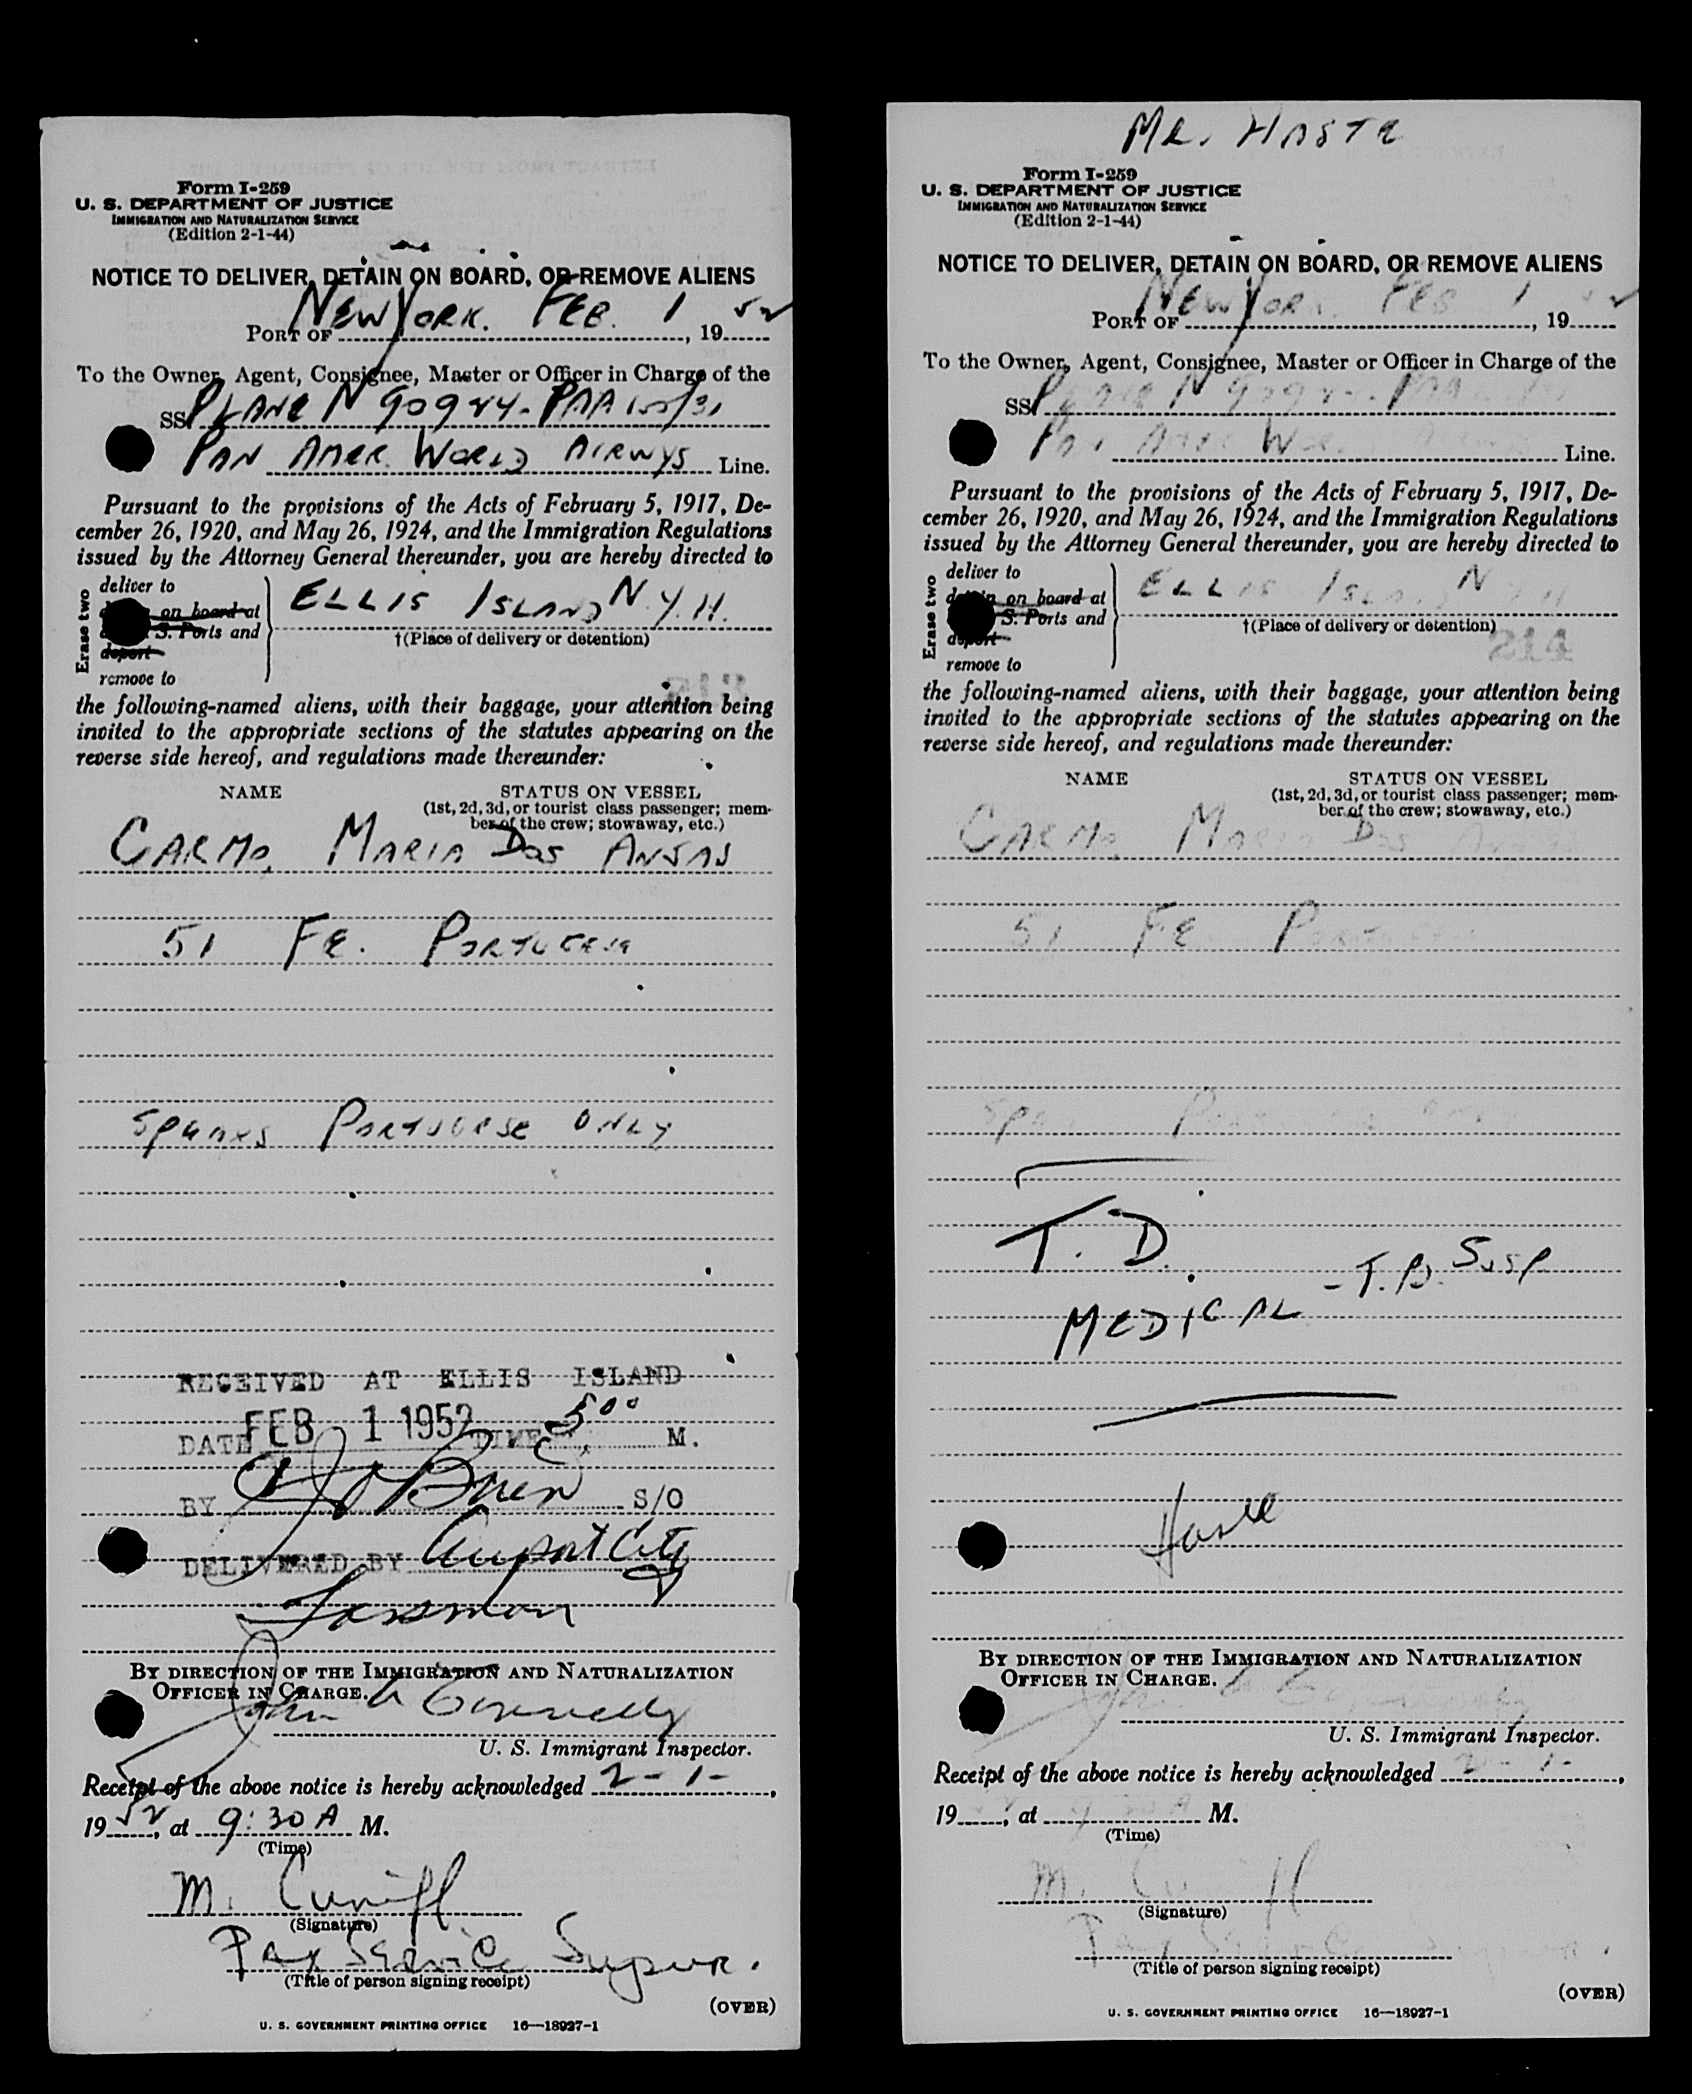 Form I-259
U. S. DEPARTMENT OF JUSTICE
IMMIGRATION AND NATURALIZATION SERVICE
(Edition 2-1-44)
NOTICE TO DELIVER, DETAIN ON BOARD, OR REMOVE ALIENS
PORT OF NEW YORK. FEB. 1, 1952
To the Owner, Agent, Consignee, Master or Officer in Charge of the
SS PLANE N 90924- PAA 155/31
PAN AMER. WORLD AIRWYS Line.
Pursuant to the provisions of the Acts of February 5, 1917, De-
cember 26, 1920, and May 26, 1924, and the Immigration Regulations
issued by the Attorney General thereunder, you are hereby directed to
Erase two
deliver to
on board at
S. Ports and
deport
remove to
ELLIS ISLAND N.Y.H.
†(Place of delivery or detention)
the following-named aliens, with their baggage, your attention being
invited to the appropriate sections of the statutes appearing on the
reverse side hereof, and regulations made thereunder:
NAME
STATUS ON VESSEL
(1st, 2d, 3d, or tourist class passenger; mem-
ber of the crew; stowaway, etc.)
CARMO, MARIA DOS ANJAS
51 FE. PORTUGESE
SPEAKS PORTUGESE ONLY
RECEIVED AT ELLIS ISLAND
DATE FEB 1 1952 TIME 5:00 M.
BY O'Brien S/O
DELIVERED BY Airport City
Lassman
BY DIRECTION OF THE IMMIGRATION AND NATURALIZATION
OFFICER IN CHARGE.
John A Connelly
U. S. Immigrant Inspector.
Receipt of the above notice is hereby acknowledged 2-1-,
1952, at 9:30 A M.
(Time)
M. Cuniff
(Signature)
Pax Service Supvr.
(Title of person signing receipt)
(OVER)
U. S. GOVERNMENT PRINTING OFFICE 16—18927-1
MR. HASTE
Form I-259
U. S. DEPARTMENT OF JUSTICE
IMMIGRATION AND NATURALIZATION SERVICE
(Edition 2-1-44)
NOTICE TO DELIVER, DETAIN ON BOARD, OR REMOVE ALIENS
PORT OF NEW YORK FEB 1, 1952
To the Owner, Agent, Consignee, Master or Officer in Charge of the
SS PLANE N 9092 - PAA
PAN AMER WOR Line.
Pursuant to the provisions of the Acts of February 5, 1917, De-
cember 26, 1920, and May 26, 1924, and the Immigration Regulations
issued by the Attorney General thereunder, you are hereby directed to
Erase two
deliver to
detain on board at
S. Ports and
deport
remove to
ELLIS ISLAND N Y H
†(Place of delivery or detention)
the following-named aliens, with their baggage, your attention being
invited to the appropriate sections of the statutes appearing on the
reverse side hereof, and regulations made thereunder:
NAME
STATUS ON VESSEL
(1st, 2d, 3d, or tourist class passenger; mem-
ber of the crew; stowaway, etc.)
CARMO, MARIA DOS
51 FE P
SP P
T. D.
MEDICAL - T.B. SUSP
BY DIRECTION OF THE IMMIGRATION AND NATURALIZATION
OFFICER IN CHARGE.
John A Connelly
U. S. Immigrant Inspector.
Receipt of the above notice is hereby acknowledged 2-1-,
19, at 9 30 A M.
(Time)
M. Cuniff
(Signature)
(Title of person signing receipt)
(OVER)
U. S. GOVERNMENT PRINTING OFFICE 16—18927-1